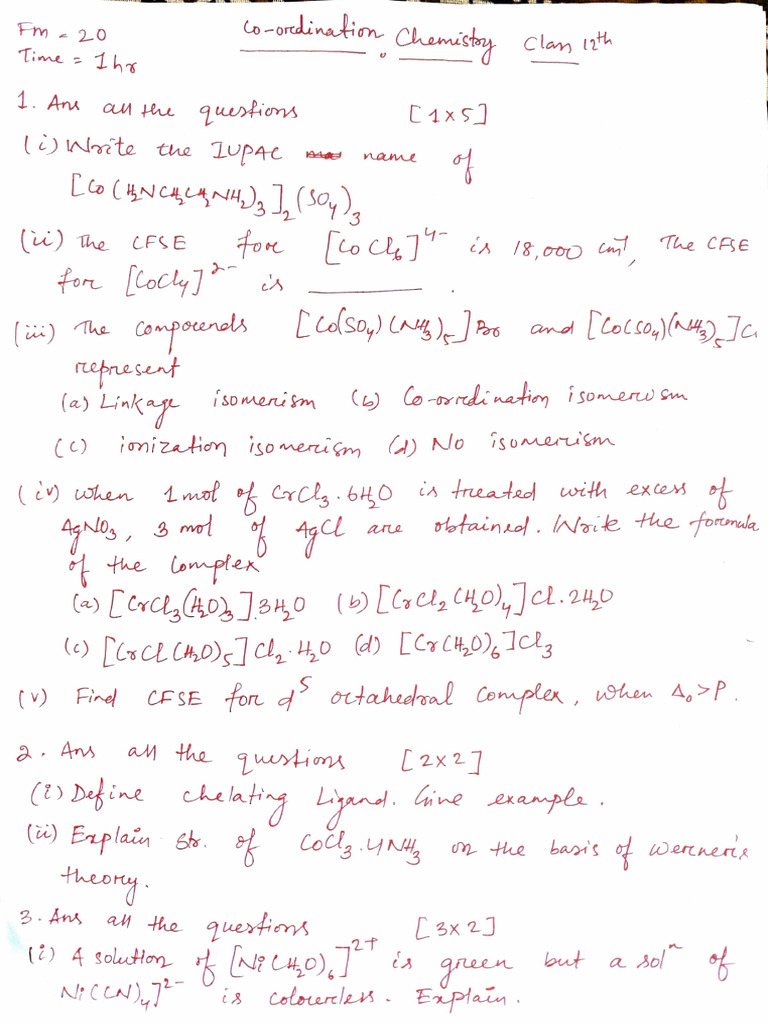 Fm = 20
Co-ordination Chemistry Class 12th
Time = 1hr
1. Ans all the questions [1×5]
(i) Write the IUPAC name of
[Co(H₂NCH₂CH₂NH₂)₃]₂(SO₄)₃
(ii) The CFSE for [CoCl₆]⁴⁻ is 18,000 cm⁻¹, The CFSE
for [CoCl₄]²⁻ is ________ .
(iii) The compounds [Co(SO₄)(NH₃)₅]Br and [Co(SO₄)(NH₃)₅]C
represent
(a) Linkage isomerism (b) Co-ordination isomerism
(c) ionization isomerism (d) No isomerism
(iv) When 1mol of CrCl₃.6H₂O is treated with excess of
AgNO₃, 3 mol of AgCl are obtained. Write the formula
of the complex
(a) [CrCl₃(H₂O)₃].3H₂O (b) [CrCl₂(H₂O)₄]Cl.2H₂O
(c) [CrCl(H₂O)₅]Cl₂.H₂O (d) [Cr(H₂O)₆]Cl₃
(v) Find CFSE for d⁵ octahedral complex, when Δ₀>P.
2. Ans all the questions [2×2]
(i) Define chelating Ligand. Give example.
(ii) Explain str. of CoCl₃.4NH₃ on the basis of Werner's
theory.
3. Ans all the questions [3×2]
(i) A solution of [Ni(H₂O)₆]²⁺ is green but a solⁿ of
Ni(CN)₄]²⁻ is colourless. Explain.